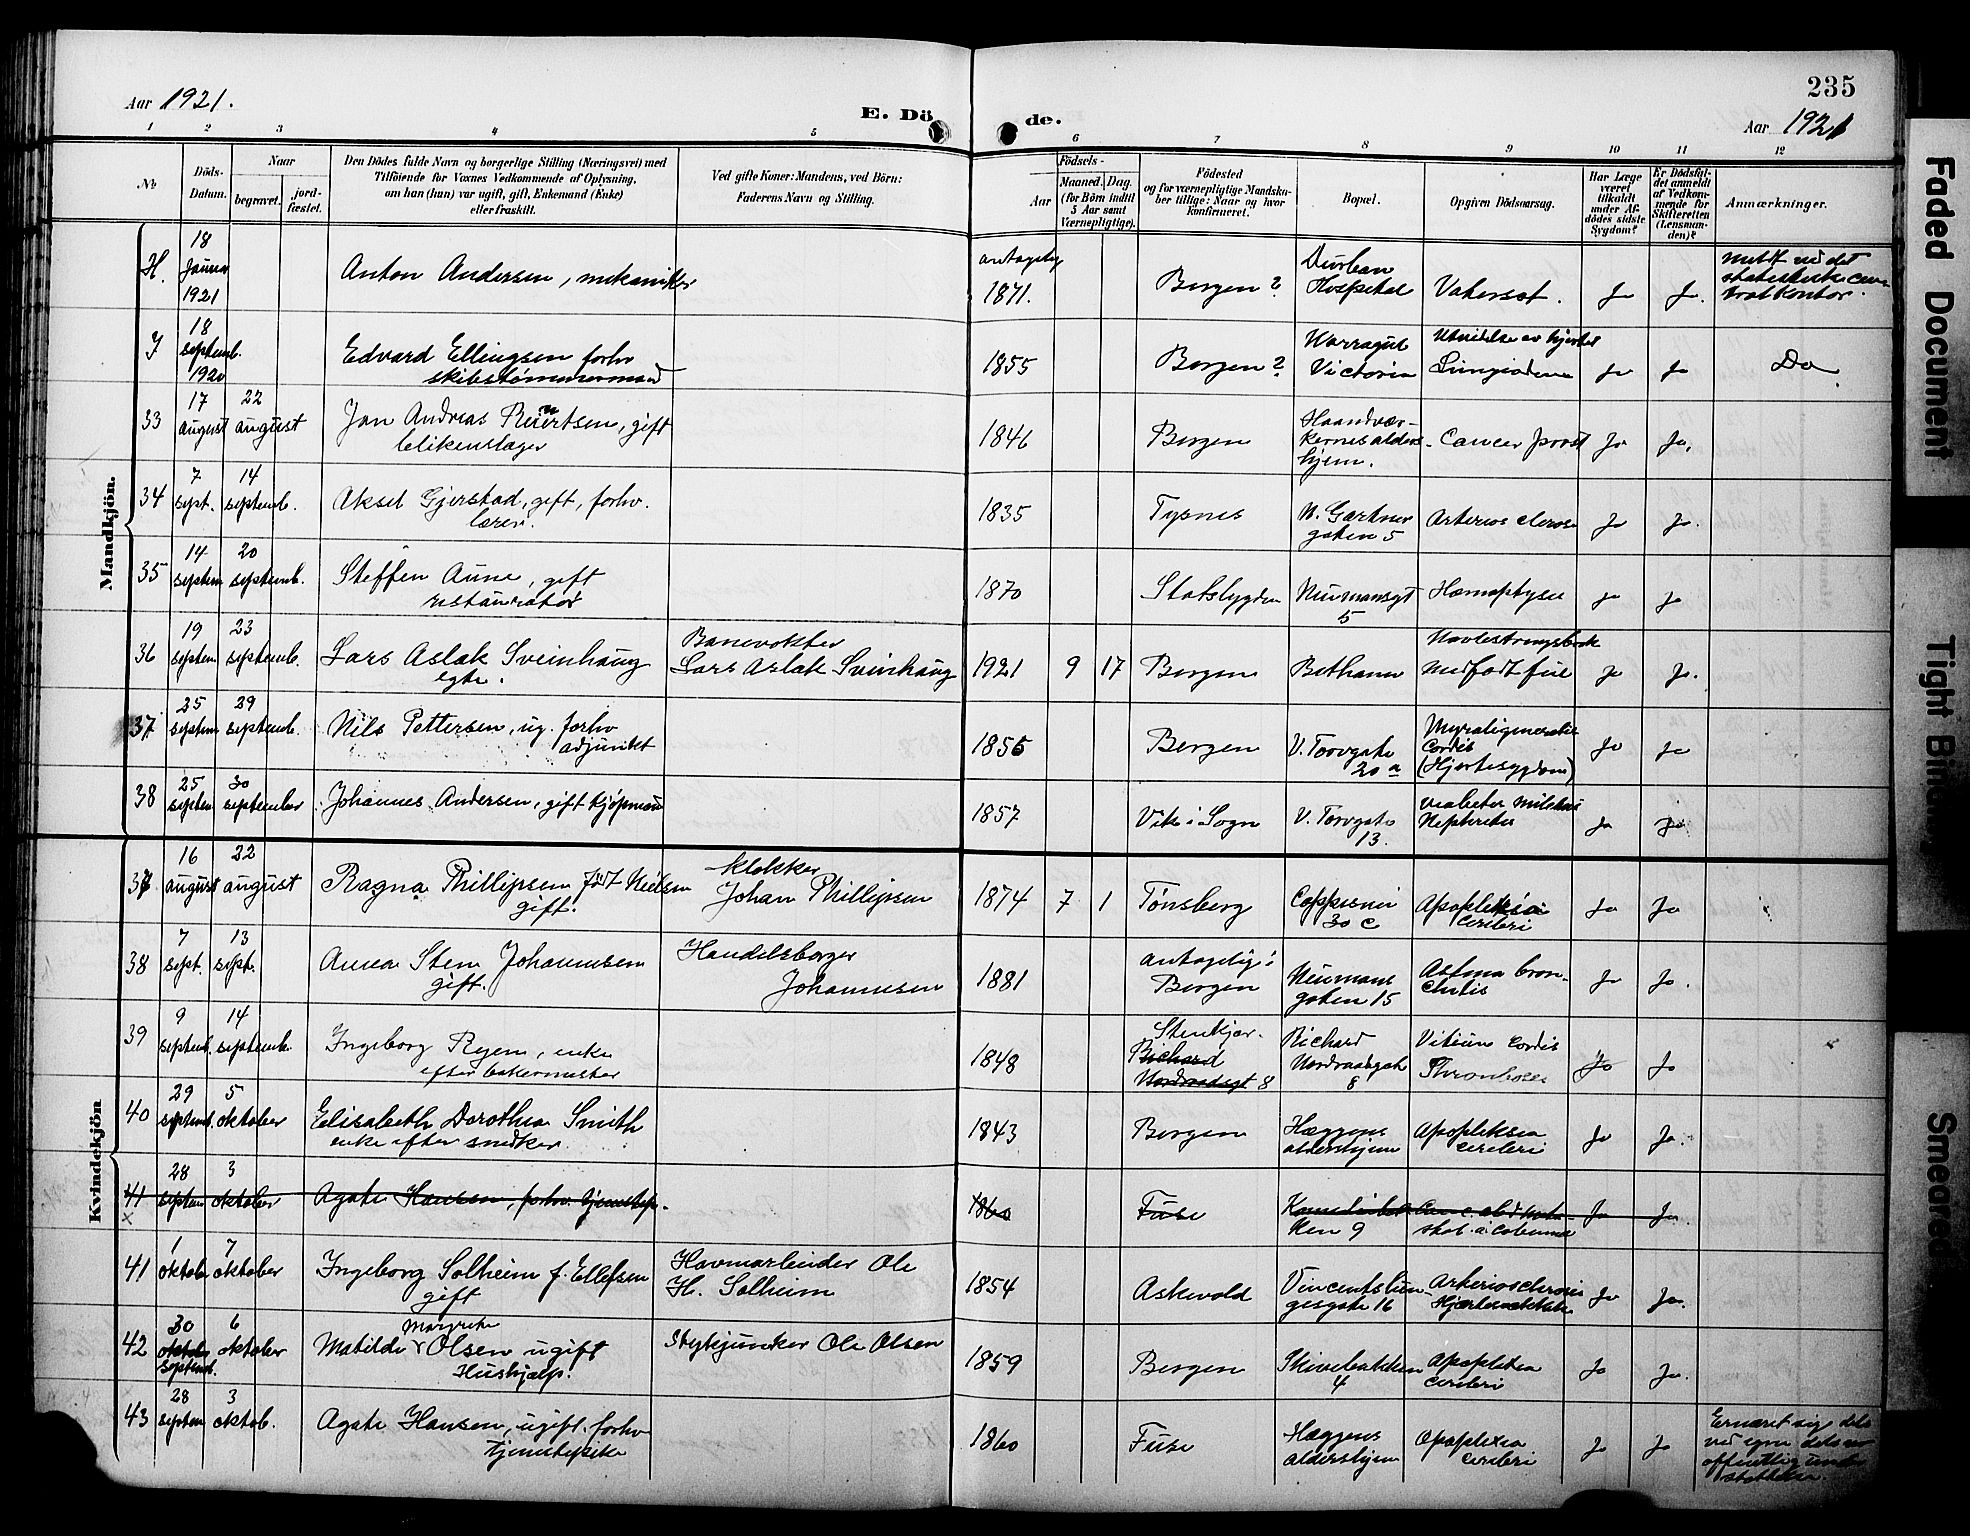 Aar 1921.
E. Dö
de.
235
Aar 1921
1 2 3 4 5 6 7 8 9 10 11 12
No
Döds-
Datum.
Naar
begravet.
jord-
fæstet.
Den Dödes fulde Navn og borgerlige Stilling (Næringsvei) med
Tilföiende for Voxnes Vedkommende af Oplysning,
om han (hun) var ugift, gift, Enkemand (Enke)
eller fraskilt.
Ved gifte Koner: Mandens, ved Börn:
Faderens Navn og Stilling.
Födsels-
Aar
Maaned. Dag.
(for Börn indtil
5 Aar samt
Værnepligtige).
Födested
og for værnepligtige Mandska-
ber tillige: Naar og hvor
konfirmeret.
Bopæl.
Opgiven Dödsaarsag.
Har Læge
været
tilkaldt
under Af-
dödes sidste
Sygdom?
Er Dödsfal-
det anmeldt
af Vedkom-
mende for
Skifteretten
(Lensman-
den)?
Anmærkninger.
Mandkjön.
H.
18
Januar
1921
Anton Andersen, mekaniker
antagelig
1871.
Bergen?
Durban
Hospital
Vatersot.
Ja
Ja.
meldt ved det
statistiske cen-
tralkontor.
J
18
septemb.
1920
Edvard Ellingsen forhv
skibstømmermand
1855
Bergen?
Warragul
Victoria
Utvidelse av hjertet
Ja
Ja
Do
33
17
august
22
august
Jan Andreas Reiertsen, gift
blikenslager
1846
Bergen
Haandvær-
kernes alders-
hjem.
Cancer prost
Ja
Ja.
34
7
sept.
14
septemb.
Aksel Gjerstad, gift, forhv.
lærer.
1835
Tysnes
N. Gartner
gaten 5
Arterios clerose
Ja
Ja.
35
14
septem
20
septemb.
Steffen Aune, gift
restauratør
1870
Statsbygden
Neumansgt
5
Hæmoptyse
Ja
Ja
36
19
septem
23
septemb.
Lars Aslak Sveinhaug
egte.
Banevokter
Lars Aslak Sveinhaug
1921
9
17
Bergen
Bethanie
Navlestrengsbrok
medfødt feil
Ja
Ja.
37
25
septem
29
septemb.
Nils Pettersen, ug. forhv
adjunkt
1856
Bergen
V. Torvgate
20 a
Cordis
(Hjertesygdom)
Ja
Ja
38
25
septem
30
september
Johannes Andersen, gift kjøpman
1857
Vik i Sogn
V. Torvgate
13.
Ja
Ja
Kvindekjön
37
16
august
22
august
Ragna Phillipsen født Nielsen
gift.
klokker
Johan Phillipsen
1874
7
1
Tønsberg
30 c
Apopleksia
cerebri
Ja
Ja
38
7
sept.
13
sept.
Anna Sten Johannesen
gift.
Handelsborger
Johannesen
1881
antagelig i
Bergen
Neumans
gaten 15
Astma bron-
chitis
Ja
Ja.
39
9
septemb.
14
septemb.
Ingeborg Ryen, enke
efter bakermester
1848
Stenkjær.
Richard
Nordraadsgt 8
Richard
Nordraadsgate
8
Vitium cordis
Thrombose
Ja
Ja
40
29
septemb.
5
oktober
Elisabeth Dorothea Smith
enke efter snedker.
1843
Bergen
Hæggens
aldershjem
Apopleksia
cerebri
Ja
Ja.
41
x
28
septem
3
oktober
Agate Hansen, forhv. tjenestep.
1860
Fuse
ken 9
Ja
Ja.
41
1
oktober
7
oktober
Ingeborg Solheim f. Ellefsen
gift
Havnarbeider Ole
H. Solheim
1854
Askevold
Vincentslun-
gesgate 16
Arteriosclerosis
Ja
Ja.
42
30
oktober
septemb.
6
oktober
Margrete
Matilde Olsen ugift
Hushjælp.
Ole Olsen
1859
Bergen
Skivebakken
4
Apoplexia
cerebri
Ja
Ja.
43
28
septem
3
oktob.
Agate Hansen, ugift, forhv
tjenestepike
1860
Fuse
Hæggens
aldershjem
Apoplexia
cerebri
Ja
Ja
Ernæret sig dels
ved egne dels av
offentlig under-
støttelse.
Faded Document
Tight Bin
Smeared